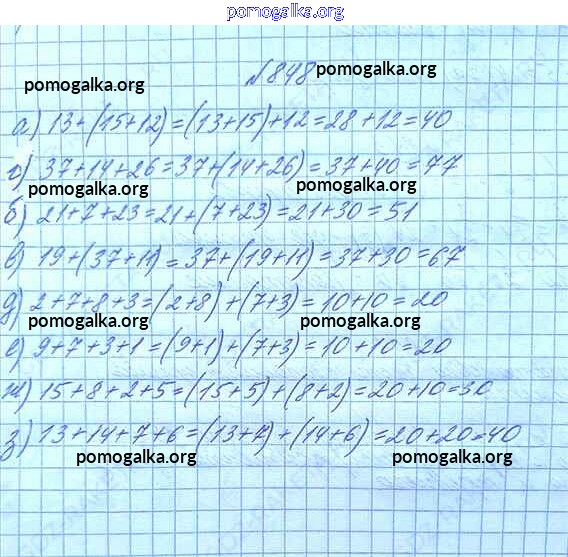 pomogalka.org
№848 pomogalka.org
pomogalka.org
а) 13+(15+12)=(13+15)+12=28+12=40
г) 37+14+26=37+(14+26)=37+40=77
pomogalka.org pomogalka.org
б) 21+7+23=21+(7+23)=21+30=51
в) 19+(37+11)=37+(19+11)=37+30=67
д) 2+7+8+3=(2+8)+(7+3)=10+10=20
pomogalka.org pomogalka.org
е) 9+7+3+1=(9+1)+(7+3)=10+10=20
ж) 15+8+2+5=(15+5)+(8+2)=20+10=30
з) 13+14+7+6=(13+7)+(14+6)=20+20=40
pomogalka.org pomogalka.org